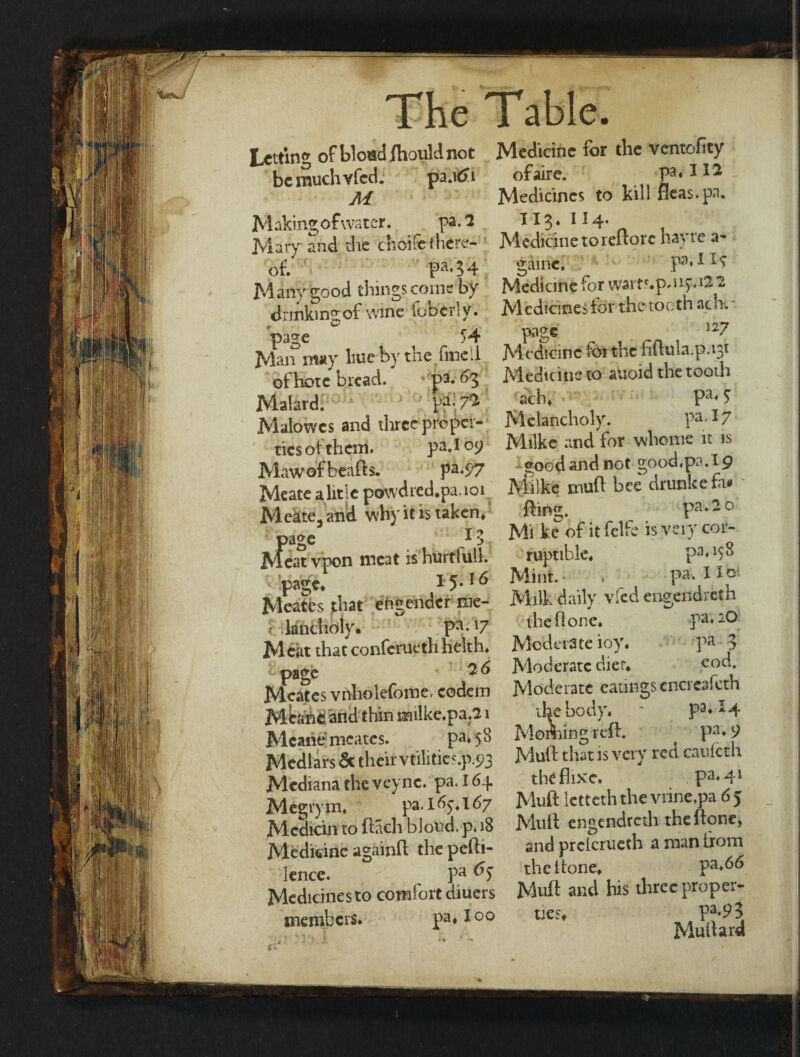 The Table.
Letting of bloud ſhould not
be much vſed. pa.161
M
Making of water. pa. 2
Mary and the choiſe there-
of. pa. 34
Many good things come by
drinking of wine ſoberly.
page 54
Man may liue by the ſmell
of hote bread. pa. 63
Malard. pa. 72
Malowes and three proper-
ties of them. pa. 109
Maw of beaſts. pa. 97
Meate a litle powdred. pa. 101
Meate, and why it is taken,
page 13
Meat vpon meat is hurtfull.
page, 15. 16
Meates that engender me-
lancholy. pa. 17
Meat that conſerueth helth.
page 26
Meates vnholeſome, eodem
Meane and thin milke. pa. 21
Meane meates. pa. 58
Medlars & their vtilities. p. 93
Mediana the veyne. pa. 164
Megrym. pa. 165. 167
Medicin to ſtach bloud. p. 18
Medicine againſt the peſti-
lence. pa 65
Medicines to comfort diuers
members. pa. 100
Medicine for the ventoſity
of aire. pa. 112
Medicines to kill fleas. pa.
113. 114.
Medicine to reſtore hayre a-
gaine. pa. 115
Medicine for warts. p. 115. 122
Medicines for the tooth ach.
page 127
Medicine for the fiſtula. p. 131
Medicine to auoid the tooth
ach. pa. 5
Melancholy. pa. 17
Milke and for whome it is
good and not good. pa. 19
Milke muſt bee drunke fa-
ſting. pa. 20
Milke of it ſelfe is very cor-
ruptible. pa. 158
Mint. pa. 110
Milk daily vſed engendreth
the ſtone. pa. 20
Moderate ioy. pa 3
Moderate diet. eod.
Moderate eatings encreaſeth
the body. pa. 14
Morning reſt. pa. 9
Muſt that is very red cauſeth
the flixe. pa. 41
Muſt letteth the vrine. pa 65
Muſt engendreth the ſtone,
and preſerueth a man from
the ſtone. pa. 66
Muſt and his three proper-
ties. pa. 93
Muſtard